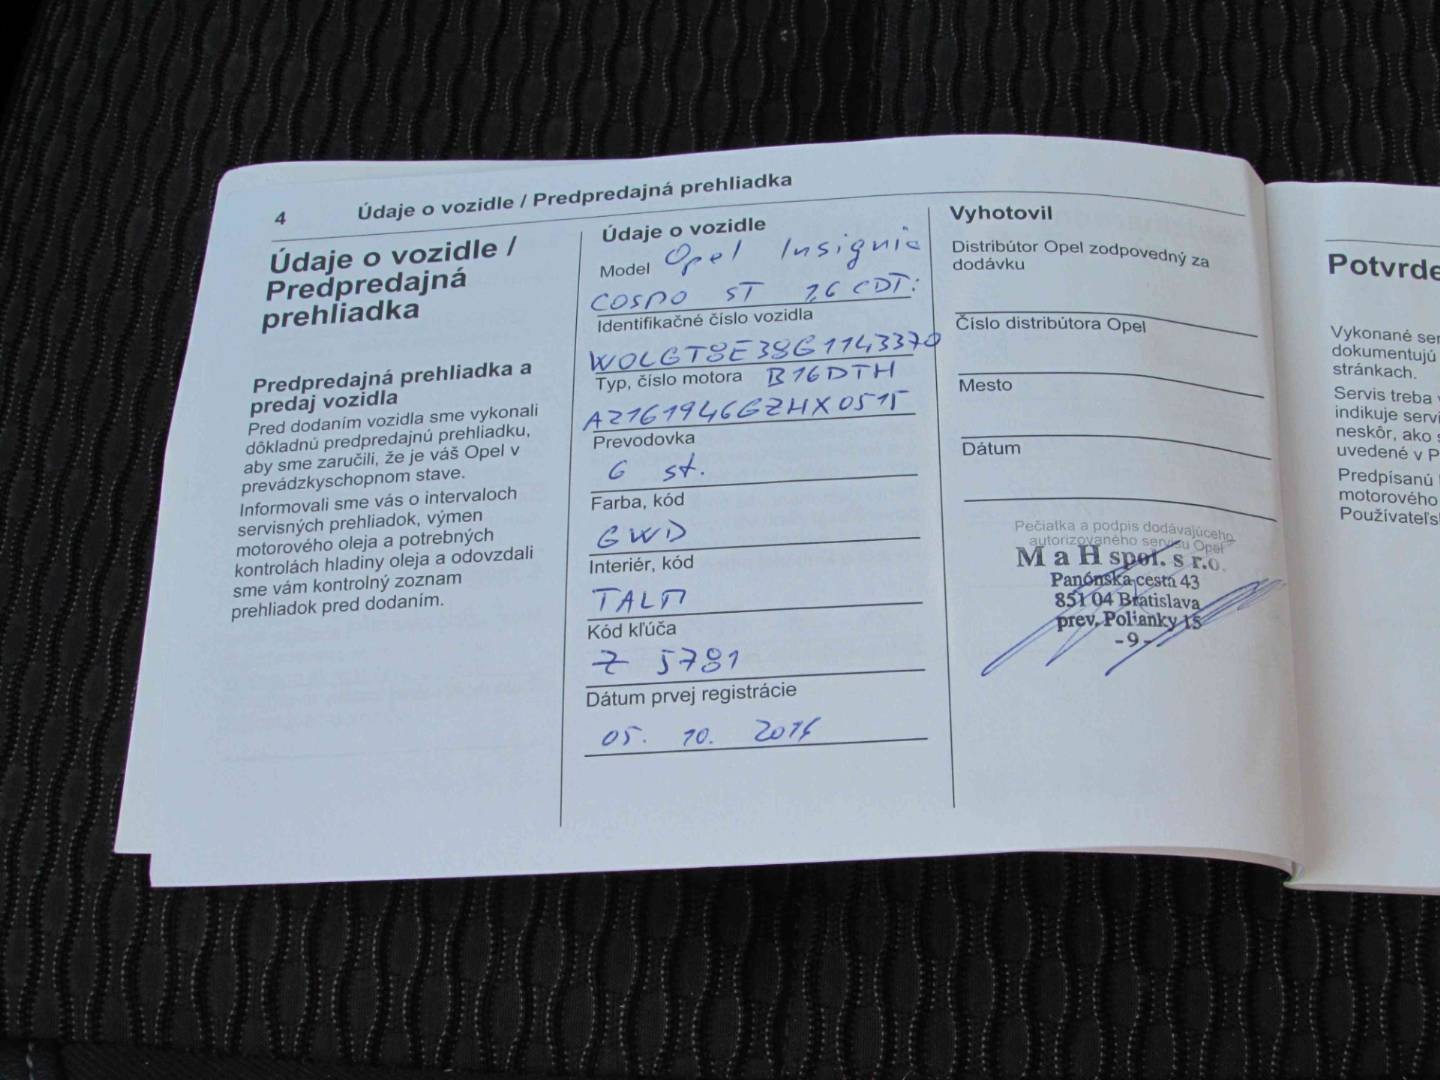 4
Údaje o vozidle / Predpredajná prehliadka
Údaje o vozidle /
Predpredajná
prehliadka
Predpredajná prehliadka a
predaj vozidla
Pred dodaním vozidla sme vykonali
dôkladnú predpredajnú prehliadku,
aby sme zaručili, že je váš Opel v
prevádzkyschopnom stave.
Informovali sme vás o intervaloch
servisných prehliadok, výmen
motorového oleja a potrebných
kontrolách hladiny oleja a odovzdali
sme vám kontrolný zoznam
prehliadok pred dodaním.
Údaje o vozidle
Model Opel Insignia
COSMO ST 1,6 CDTi
Identifikačné číslo vozidla
W0LGT8E38G1143370
Typ, číslo motora B16DTH
A2161946GZHX0515
Prevodovka
6 st.
Farba, kód
GWD
Interiér, kód
TALM
Kód kľúča
Z 5781
Dátum prvej registrácie
05. 10. 2016
Vyhotovil
Distribútor Opel zodpovedný za
dodávku
Číslo distribútora Opel
Mesto
Dátum
Pečiatka a podpis dodávajúceho
autorizovaného servisu Opel
M a H spol. s r.o.
Panónska cesta 43
851 04 Bratislava
prev. Polianky 15
-9-
Potvrde
Vykonané ser
dokumentujú
stránkach.
Servis treba
indikuje servi
neskôr, ako
uvedené v P
Predpísanú
motorového
Používateľs